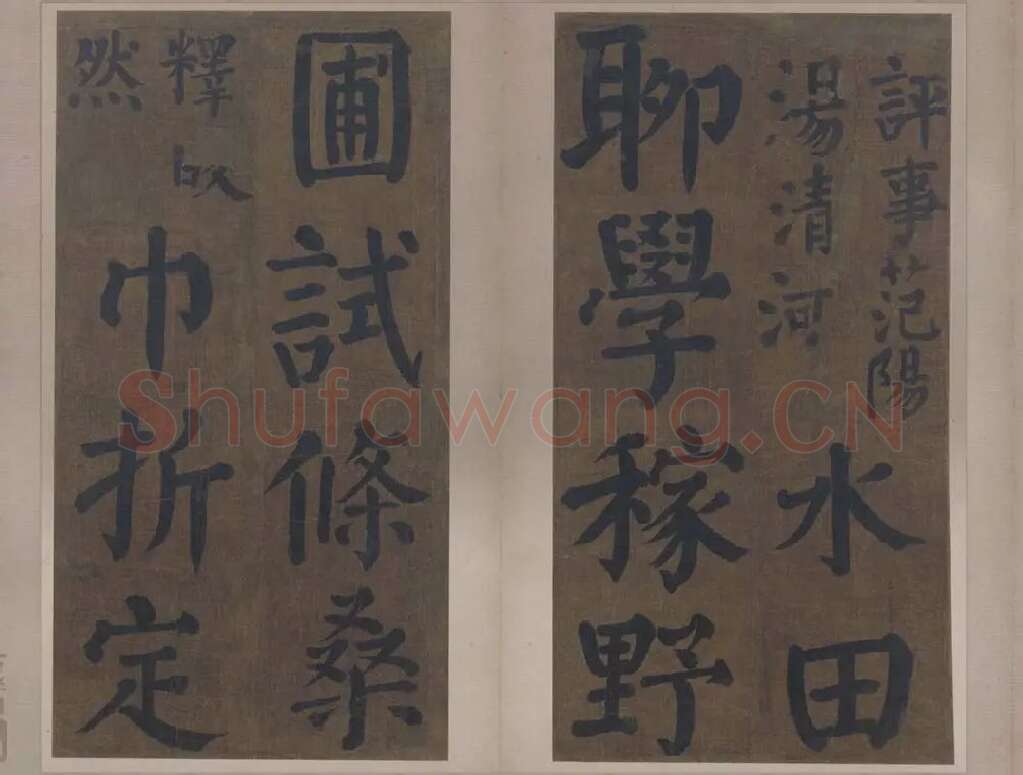 評事范陽
湯清河
水田
聊學稼野
圃試條桑
釋
然
巾折定
Shufawang.CN